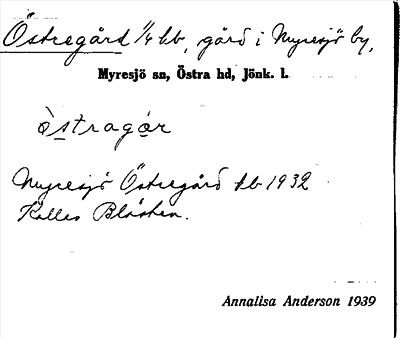 Östregård 1/4 kb, gård i Myresjö by,
Myresjö sn, Östra hd, Jönk. l.
òstragår
Myresjö Östregård tb 1932
Kallas Blåsten.
Annalisa Anderson 1939